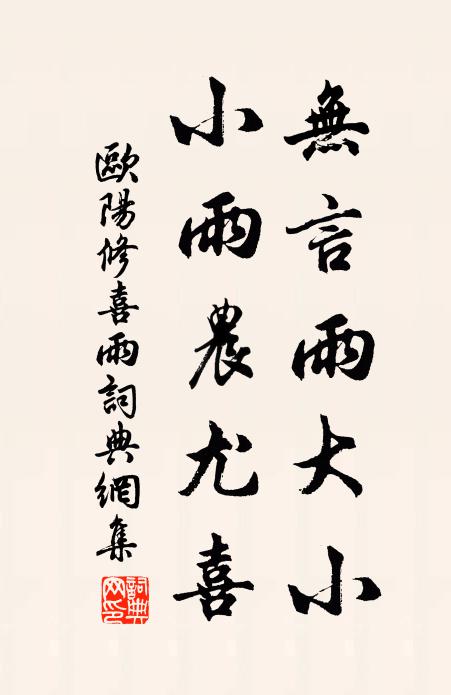 無言雨大小
小雨農尤喜
歐陽修喜雨詞典網集
詞典網印